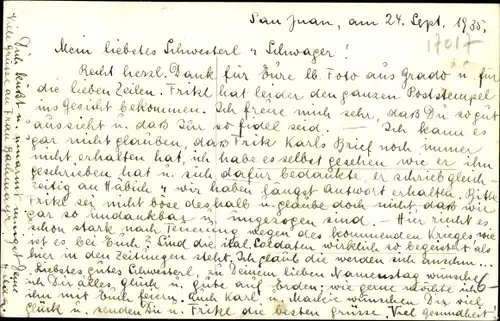 San Juan, am 24. Sept. 1935.
17017
Mein liebstes Schwesterl u Schwager!
Recht herzl. Dank für Eure lb. Foto aus Grado u. für
die lieben Zeilen. Fritzl hat leider den ganzen Poststempel
ins Gesicht bekommen. Ich freue mich sehr, daß Du so gut
aussieht u. daß Ihr so fidel seid. — Ich kann es
gar nicht glauben, daß Fritz Karls Brief noch immer
nicht erhalten hat, ich habe es selbst gesehen wie er ihn
geschrieben hat u. sich dafür bedankte, er schrieb gleich-
zeitig an Habich u wir haben längst Antwort erhalten. Bitte
Fritzl sei nicht böse deshalb u. glaube doch nicht, daß wir
gar so undankbar u. ungezogen sind. — Hier riecht es
schon stark nach Teuerung wegen des kommenden Krieges wie
ist es bei Euch? Sind die ital. Soldaten wirklich so begeistert als
hier in den Zeitungen steht. Ich glaub die werden sich
Liebstes gutes Schwesterl, zu Deinem lieben Namenstag wünsche
ich Dir alles, glück u. gute auf Erden; wie gerne möchte ich
ihn mit Euch feiern. Auch Karl u. Marie wünschen Dir viel
glück u. senden Dir u. Fritzl die besten grüsse. Viel Gesundheit!
Dich küsst u. umarmt innigst Deine
Viele grüsse an Frau